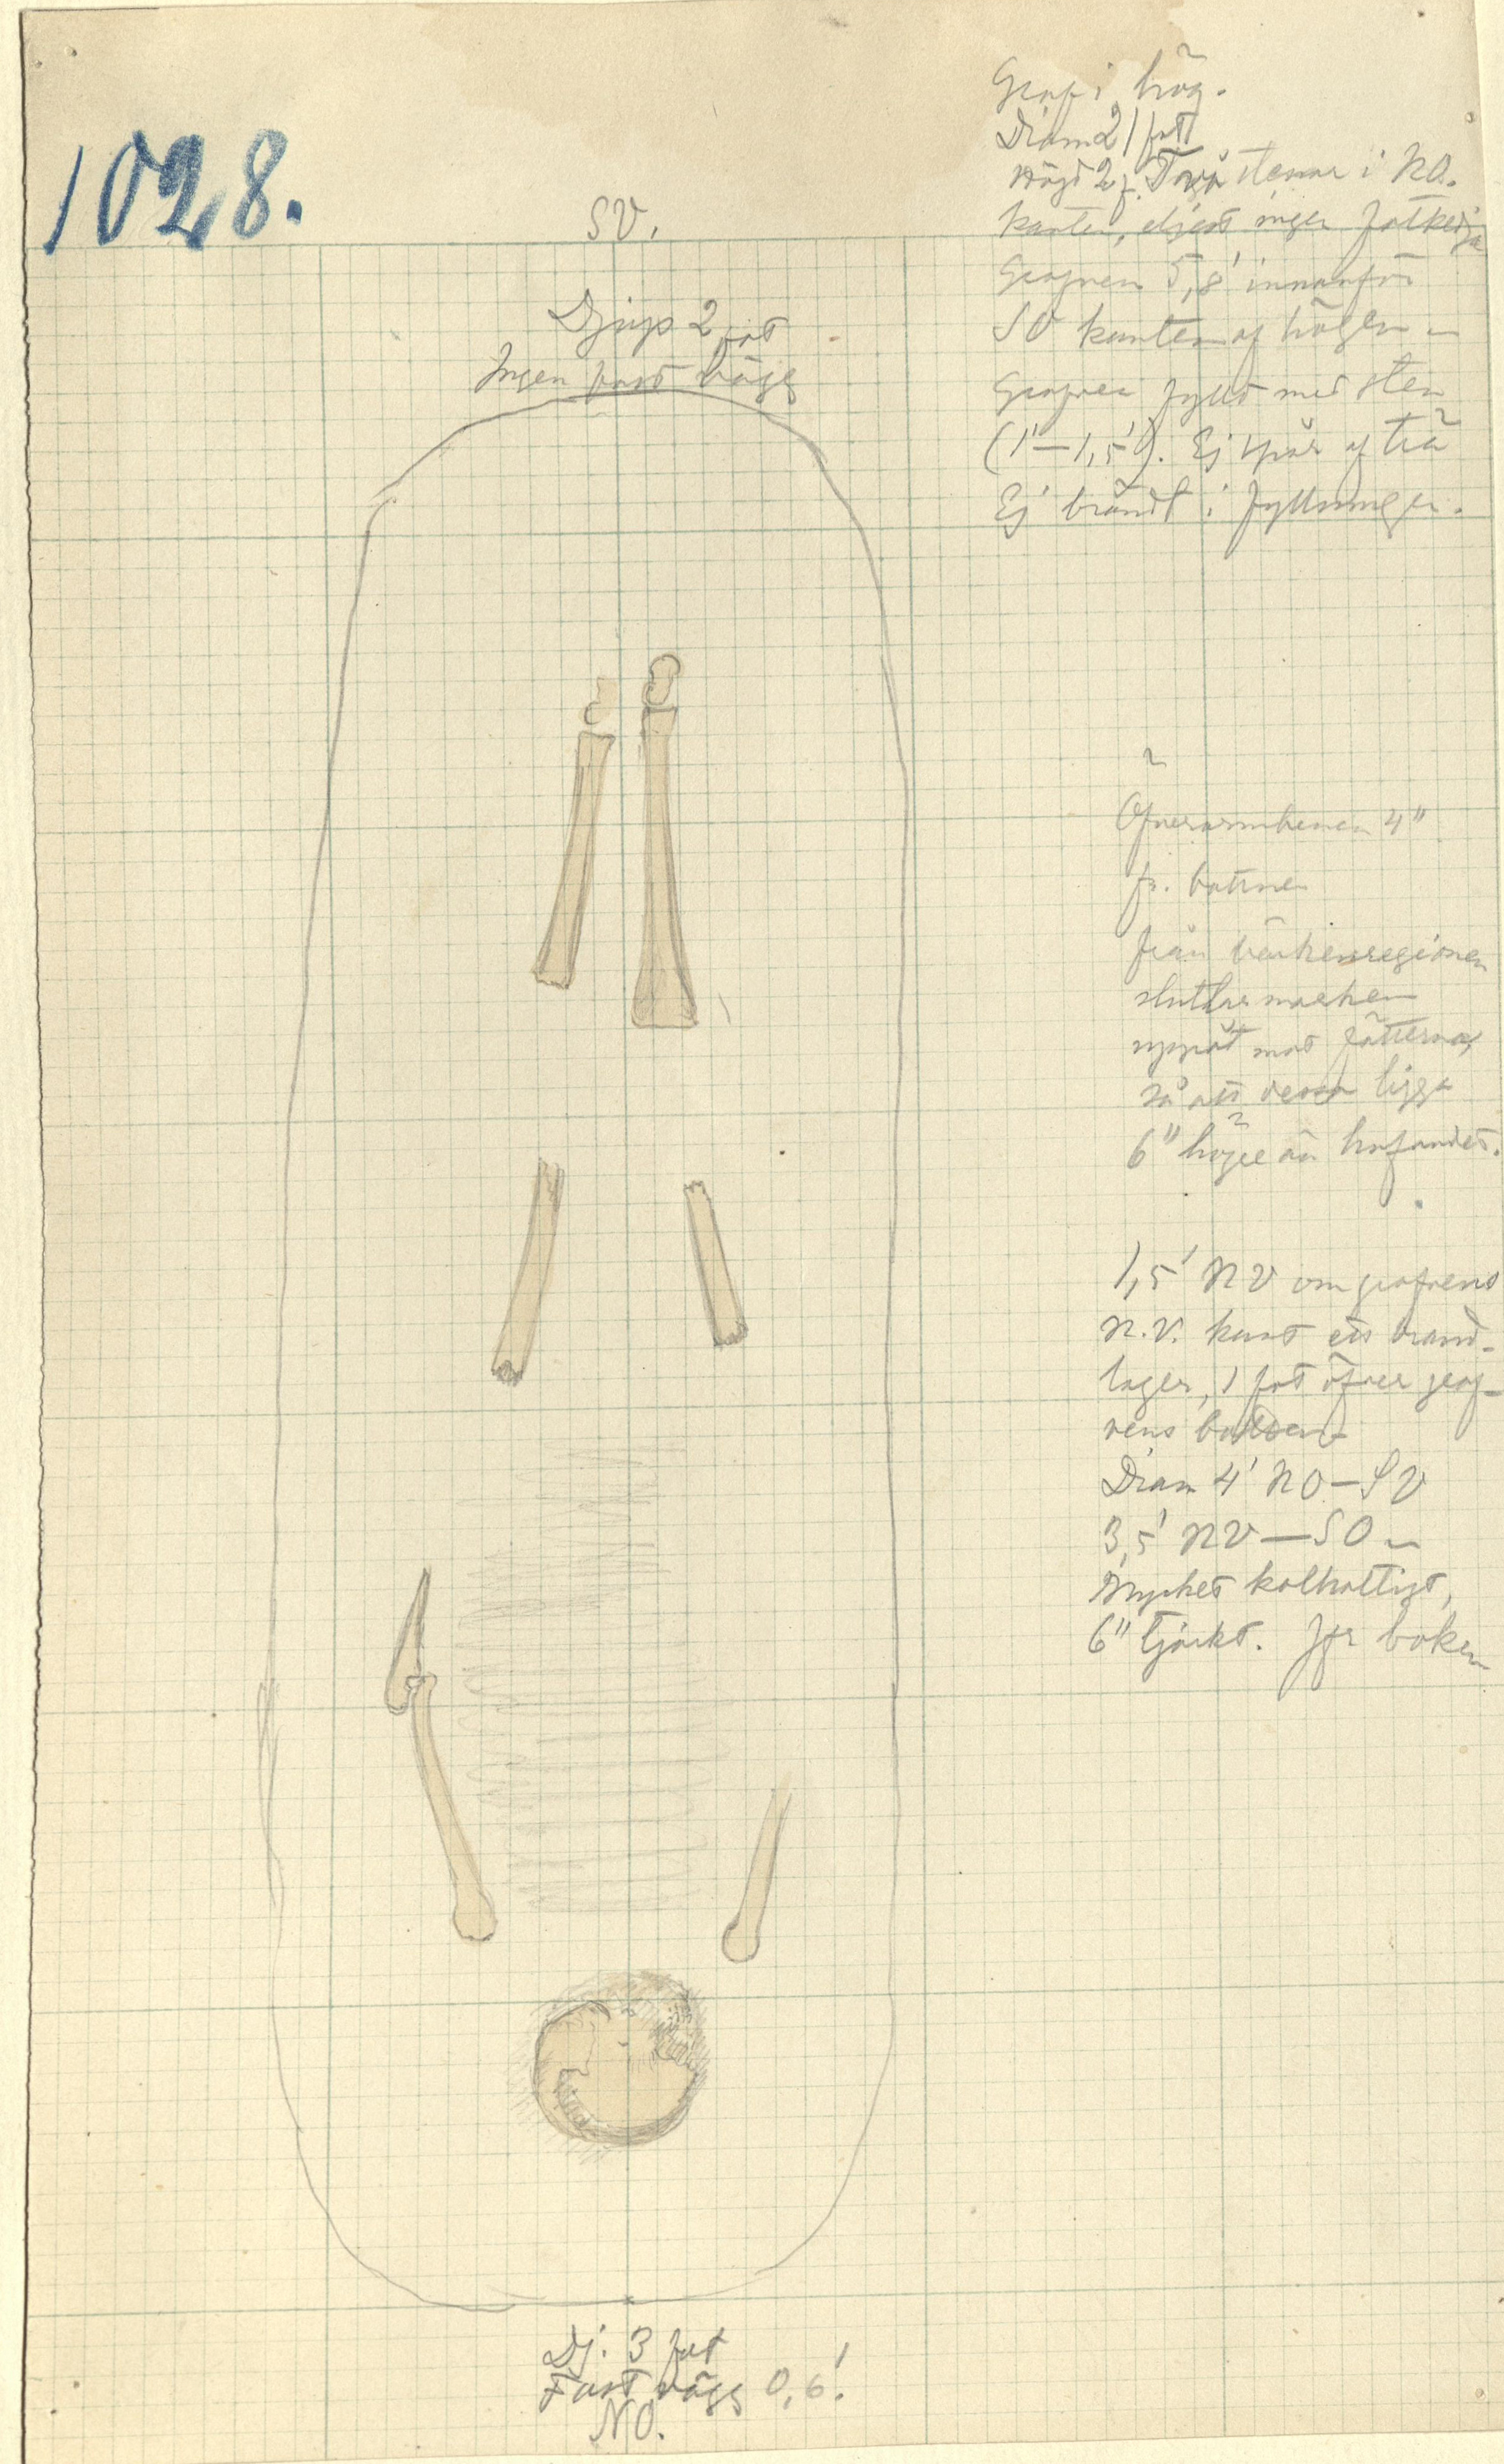 1028.
SV.
Djup 2 fot
Ingen fast vägg
Graf i hög.
Diam 21 fot
Höjd 2 f. Två stenar i NO.
kanten, eljest ingen fotkedja
Grafven 5,8' innanför
SV kanten af högen
Grafven fylld med sten
(1'–1,5'). Ej spår af trä
Ej brändt i fyllningen.
Öfverarmbenen 4"
fr. bottnen
från bäckenregionen
sluttar marken
uppåt mot fötterna,
så att dessa ligga
6" högre än hufvudet.
1,5' NV om grafvens
N.V. kant ett brand-
lager, 1 fot öfver graf-
vens botten
Diam 4' NO–SV
3,5' NV–SO
Mycket kolhaltigt,
6" tjockt. Jfr boken
Dj. 3 fot
Fast vägg 0,6'.
NO.